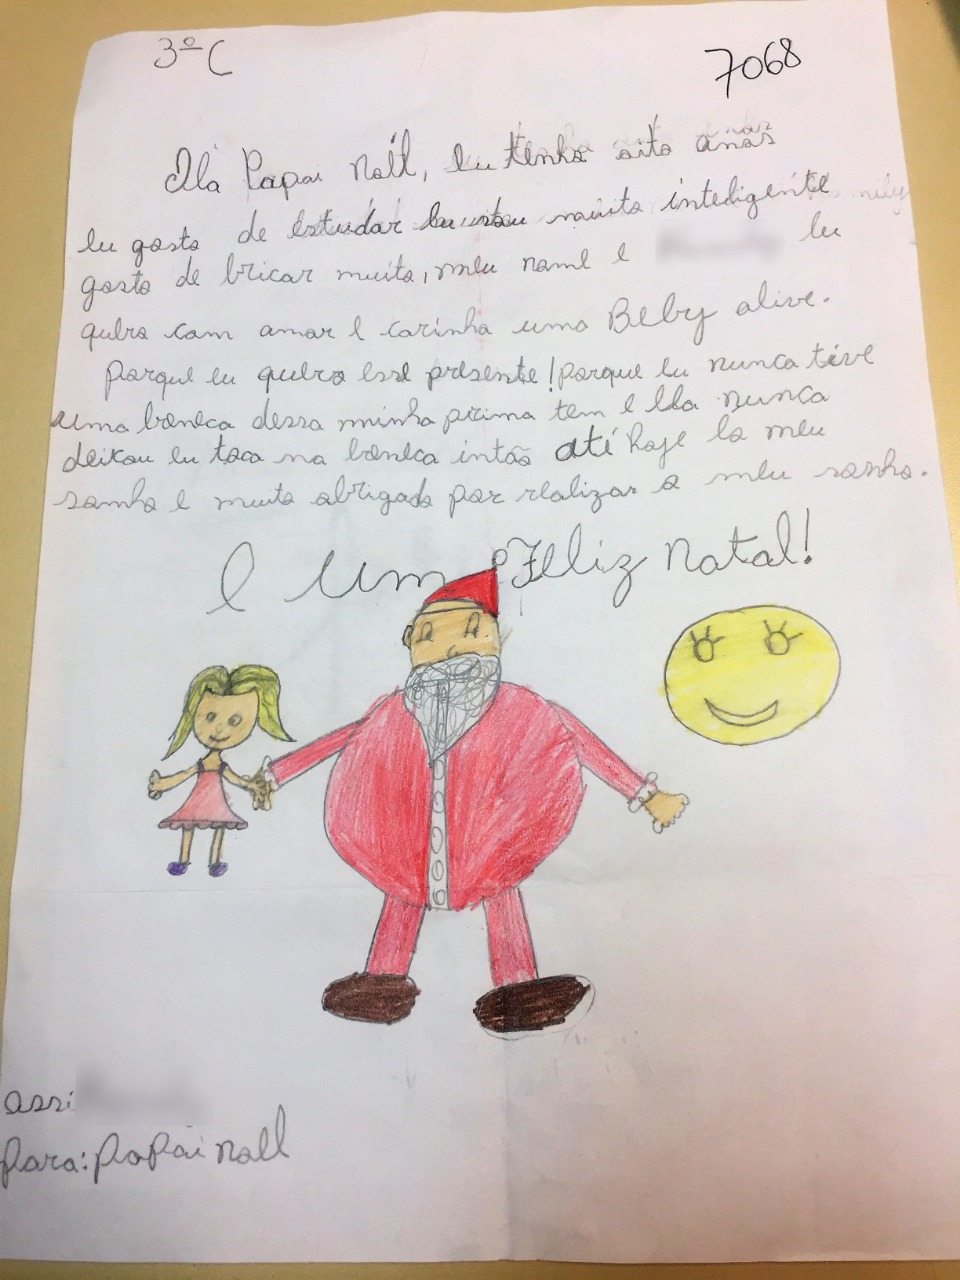 3º C
7068
Olá Papai Noél, eu tenho oito anos
eu gosto de estudar eu estou muito intedigente
gosto de bricar muito, meu nome e eu
quero com amor e carinho uma Beby alive.
Porque eu quero esse presente! porque eu nunca tive
uma boneca dessa minha prima tem e Ela nunca
deixou eu toca na boneca intão até hoje eo meu
sonho e muito obrigado por realizar o meu sonho.
E Um Feliz Natal!
assi:
Para: papai noel